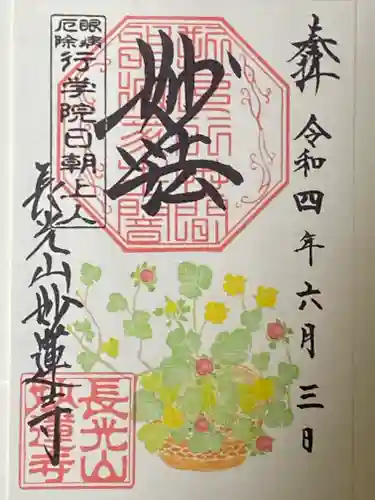 奉拝
令和四年六月三日
妙法
眼病
厄除
行学院日朝上人
長光山妙蓮寺
長光山
妙蓮寺